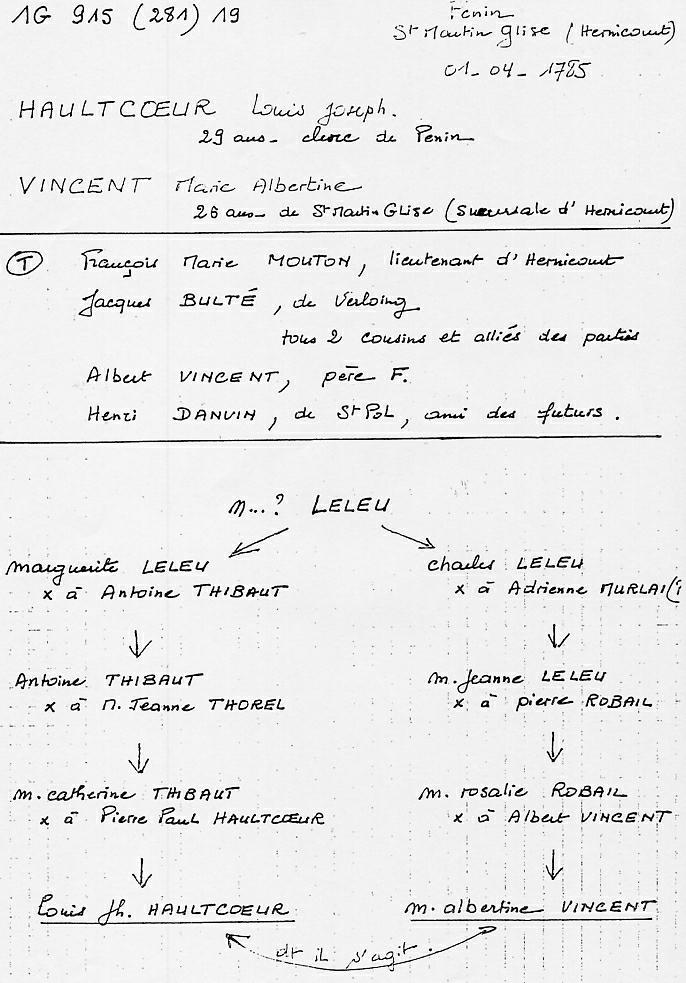 1G 915 (281) 19
Penin
St Martin Glise (Hernicourt)
01-04-1785
HAULTCŒUR Louis Joseph.
29 ans - clerc de Penin
VINCENT Marie Albertine
26 ans - de St Martin Glise (Succursale d'Hernicourt)
(T) François Marie MOUTON, lieutenant d'Hernicourt
Jacques BULTÉ, de Verloing
tous 2 cousins et alliés des parties
Albert VINCENT, père F.
Henri DANVIN, de St Pol, ami des futurs.
N...? LELEU
Marguerite LELEU
x à Antoine THIBAUT
Charles LELEU
x à Adrienne MURLAI(?
Antoine THIBAUT
x à M. Jeanne THOREL
M. Jeanne LELEU
x à Pierre ROBAIL
M. Catherine THIBAUT
x à Pierre Paul HAULTCŒUR
M. Rosalie ROBAIL
x à Albert VINCENT
Louis Jh. HAULTCOEUR
M. Albertine VINCENT
dt il s'agit.